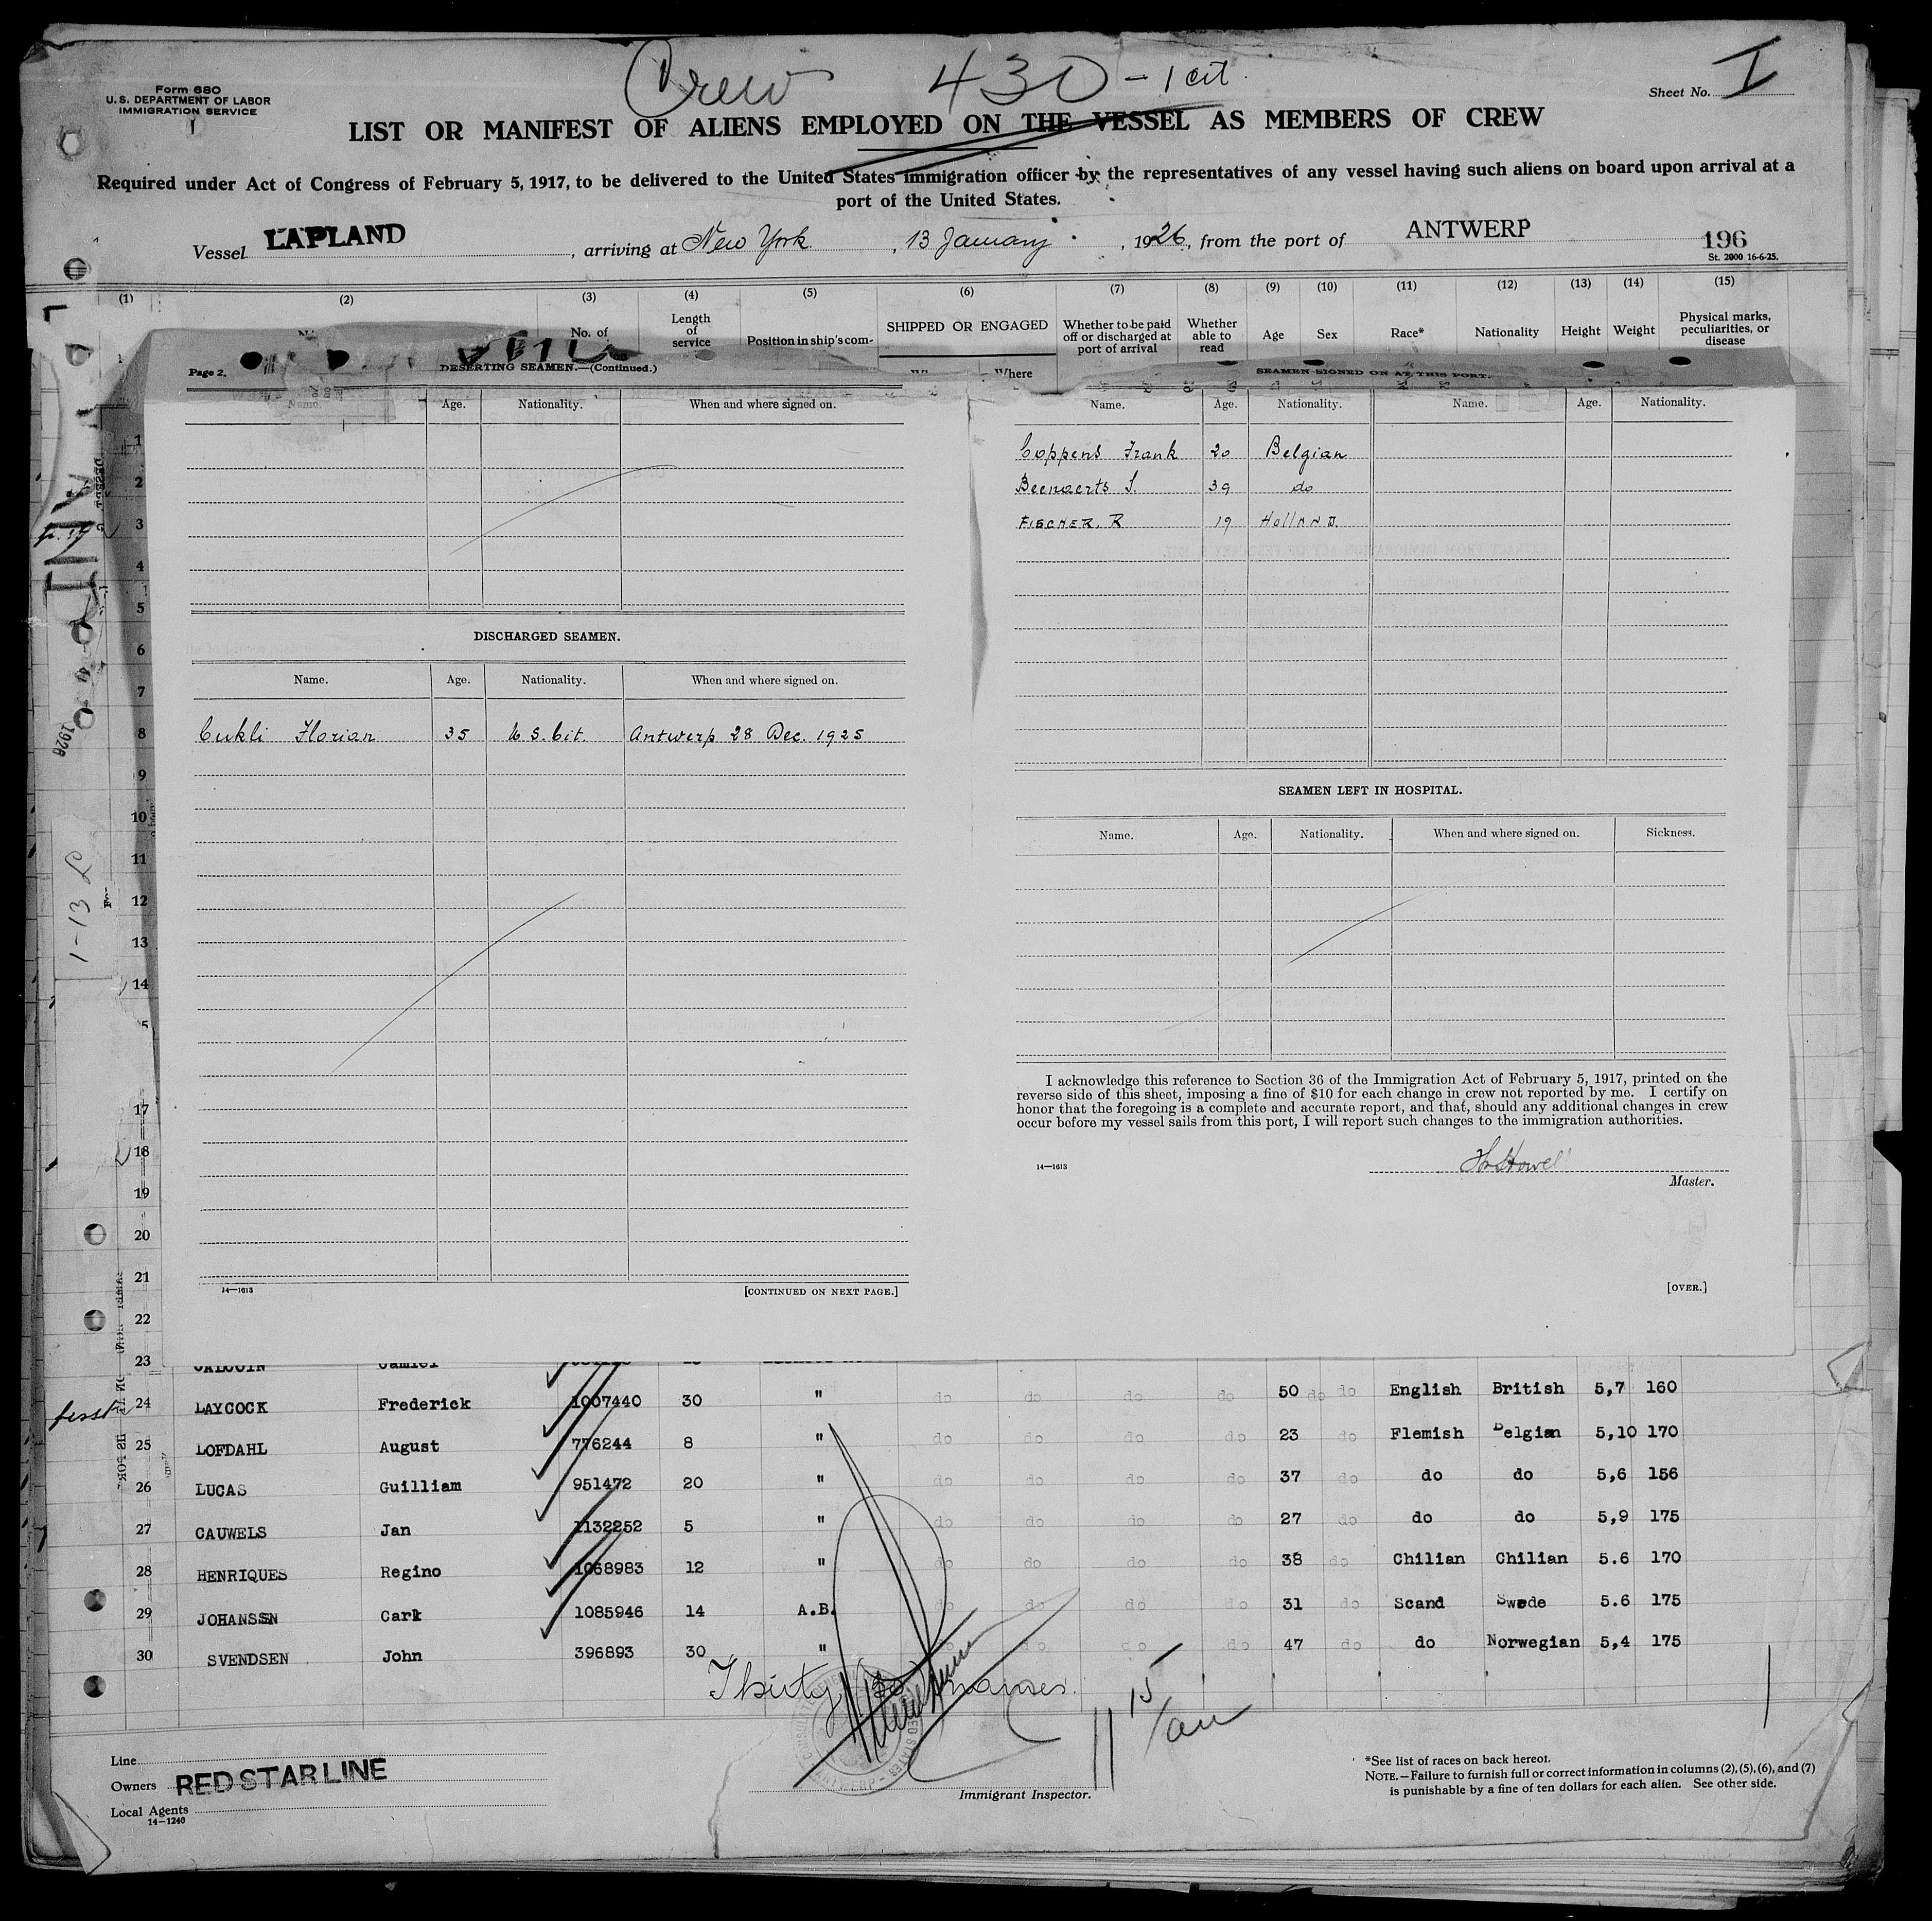 Crew 430 - 1 cit.
Form 680
U. S. DEPARTMENT OF LABOR
IMMIGRATION SERVICE
Sheet No. I
LIST OR MANIFEST OF ALIENS EMPLOYED ON THE VESSEL AS MEMBERS OF CREW
Required under Act of Congress of February 5, 1917, to be delivered to the United States immigration officer by the representatives of any vessel having such aliens on board upon arrival at a
port of the United States.
Vessel LAPLAND, arriving at New York, 13 January, 1926, from the port of ANTWERP
196
St. 2000 16-6-25.
(1) (2) (3) (4) (5) (6) (7) (8) (9) (10) (11) (12) (13) (14) (15)
No. of
Length of service
Position in ship's com-
SHIPPED OR ENGAGED
Where
Whether to be paid off or discharged at port of arrival
Whether able to read
Age
Sex
Race*
Nationality
Height
Weight
Physical marks, peculiarities, or disease
Page 2.
DESERTING SEAMEN.—(Continued.)
Name. Age. Nationality. When and where signed on.
DISCHARGED SEAMEN.
Name. Age. Nationality. When and where signed on.
Cukli Florian 35 U.S. Cit. Antwerp 28 Dec. 1925
14—1613
[CONTINUED ON NEXT PAGE.]
SEAMEN SIGNED ON AT THIS PORT.
Name. Age. Nationality. Name. Age. Nationality.
Coppens Frank 20 Belgian
Beenaerts J. 39 do
FISCHER. R 19 HollAND.
SEAMEN LEFT IN HOSPITAL.
Name. Age. Nationality. When and where signed on. Sickness.
I acknowledge this reference to Section 36 of the Immigration Act of February 5, 1917, printed on the
reverse side of this sheet, imposing a fine of $10 for each change in crew not reported by me. I certify on
honor that the foregoing is a complete and accurate report, and that, should any additional changes in crew
occur before my vessel sails from this port, I will report such changes to the immigration authorities.
14—1613
Howell
Master.
[OVER.]
1
2
3
4
5
6
7
8
9
10
11
12
13
14
5
17
18
19
20
21
22
23
1926
1-13 L
first
24 LAYCOCK Frederick 1007440 30 " do do do do 50 do do English British 5,7 160
25 LOFDAHL August 776244 8 " do do do do 23 do Flemish Belgian 5,10 170
26 LUCAS Guilliam 951472 20 " do do do do 37 do do do 5,6 156
27 CAUWELS Jan 1132252 5 " do do do do 27 do do do 5,9 175
28 HENRIQUES Regino 1068983 12 " do do do do 38 do Chilian Chilian 5.6 170
29 JOHANSSN Cark 1085946 14 A.B. do do do do 31 do Scand Swede 5.6 175
30 SVENDSEN John 396893 30 " do do do do 47 do do Norwegian 5,4 175
Thirty (30) names.
11 15/am
Line
Owners RED STAR LINE
Local Agents
14—1240
Immigrant Inspector.
*See list of races on back hereof.
NOTE.—Failure to furnish full or correct information in columns (2), (5), (6), and (7)
is punishable by a fine of ten dollars for each alien. See other side.